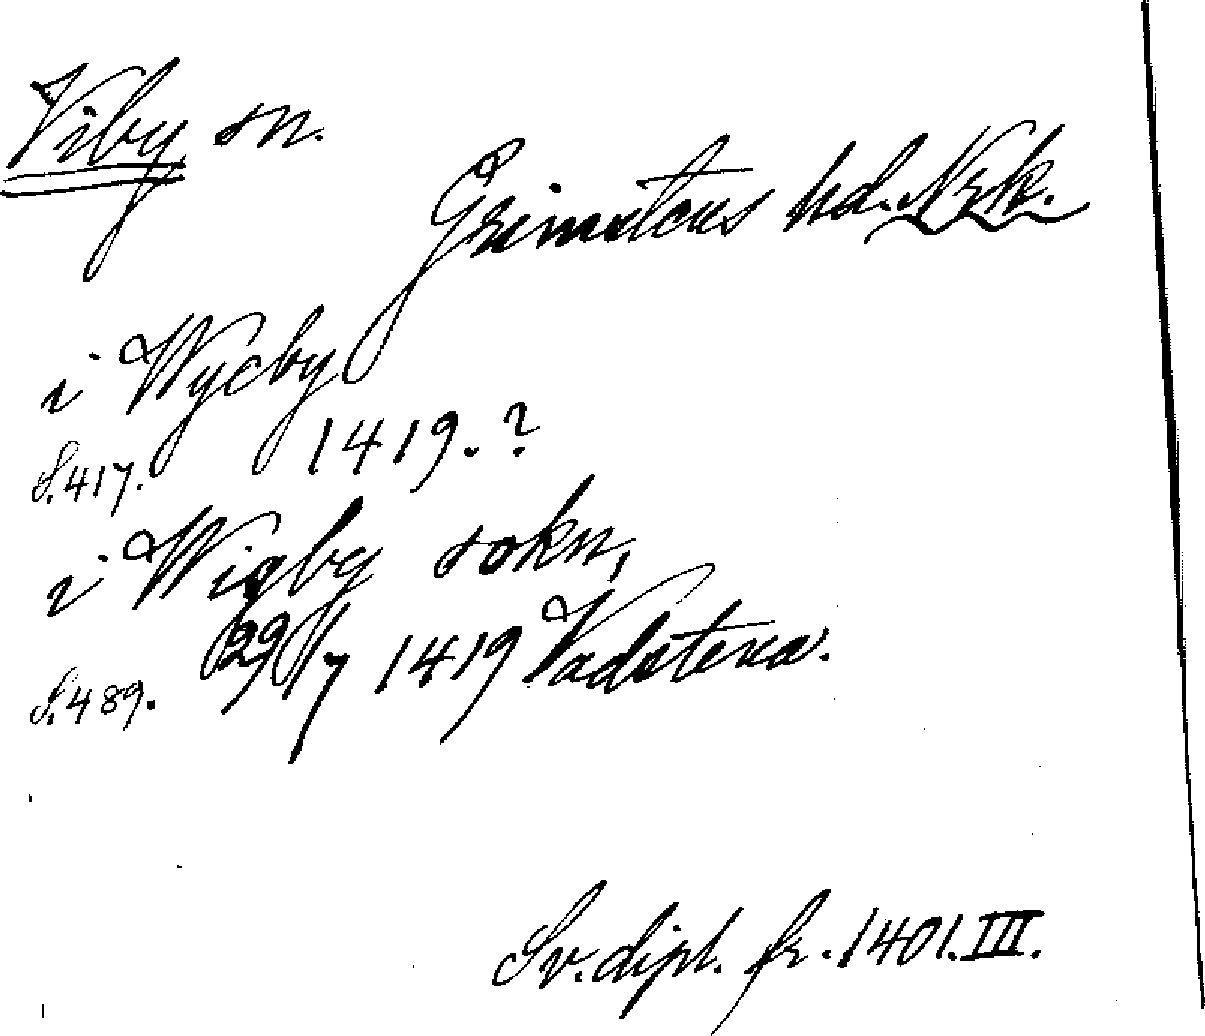 Viby sn.
Grimstens hd. Nrk.
i Wycby
S. 417. 1419. ?
i Wigby sokn,
S. 489. 29/7 1419 Vadstena.
Sv. dipl. fr. 1401. III.